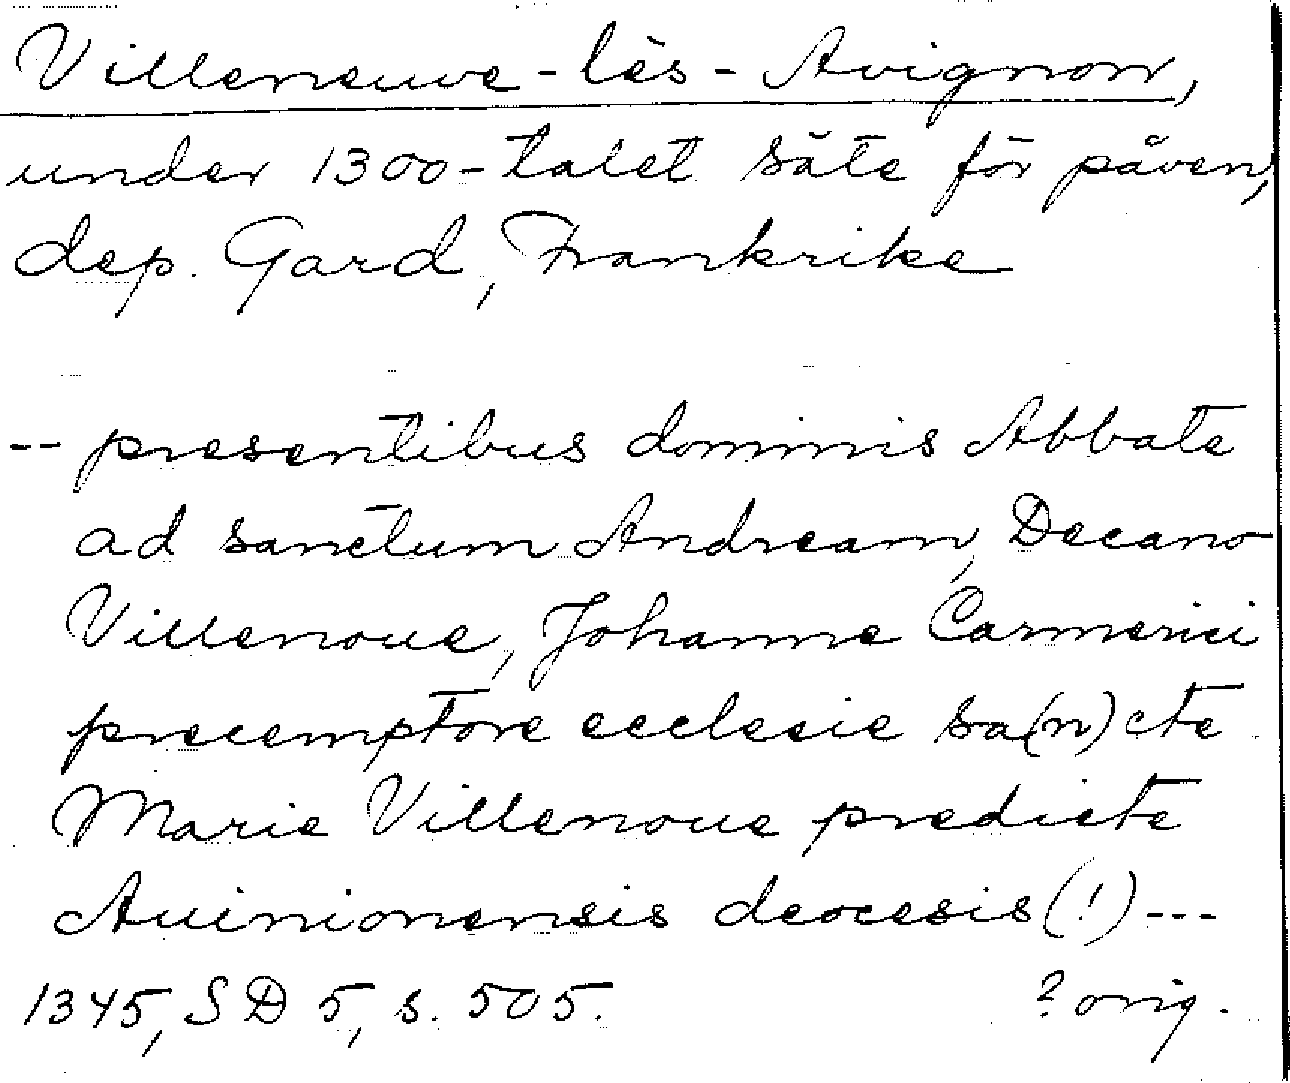 Villeneuve-lès-Avignon,
under 1300-talet säte för påven,
dep. Gard, Frankrike
-- presentibus dominis Abbate
ad sanctum Andream, Decano
Villenoue, Johanne Carmerici
precemptore ecclesie sa(n)cte
Marie Villenoue predicte
Auinionensis deocesis (!) ---
1345, SD 5, s. 505. ? orig.